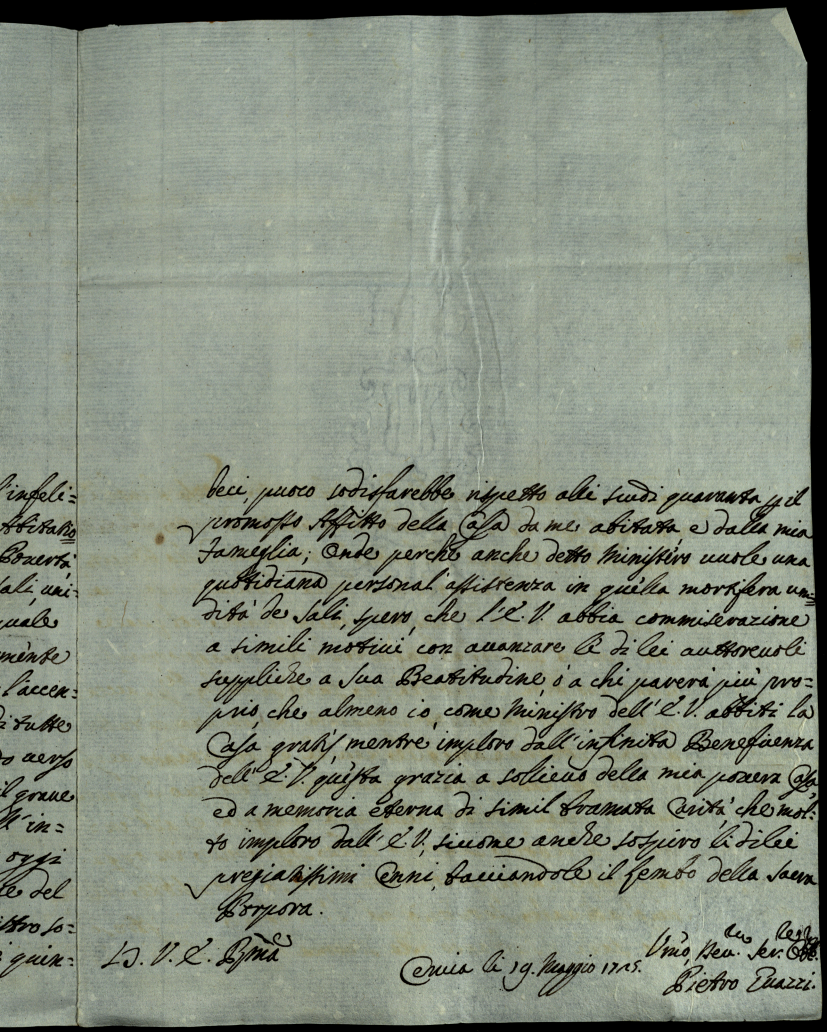 l'infeli=
Abitatio
Povertà
sali, uni=
quale
mente
l'accen=
di tutte
verso
il grave
in=
oggi
le del
so=
quin=
beci, puoco sodisfarebbe rispetto alli scudi quaranta p il
promosso Affitto della Casa da me abitata e dalla mia
Fameglia; Onde perche anche detto Ministero uuole una
quotidiana personal'assistenza in quella mortifera umi=
dità de Sali, spero, che l'E.V. abbia commiserazione
a simili motivi con auanzare le di lei auttoreuoli
suppliche a Sua Beatitudine, ò a chi parerà più pro=
prio, che almeno io, come Ministro dell'E.V. abbiti la
Casa gratis, mentre imploro dall'infinita Beneficenza
dell'E.V. questa grazia a sollieuo della mia pouera Casa,
ed a memoria eterna di simil bramata Carità, che mol=
to imploro dall'E.V., siccome anche sospiro li di lei
pregiatissimi Cenni, bacciandole il lembo della Sacra
Porpora.
D. V. E. Rma
Ceruia li 19 Maggio 1725.
Umo, Deu. Ser.
Pietro